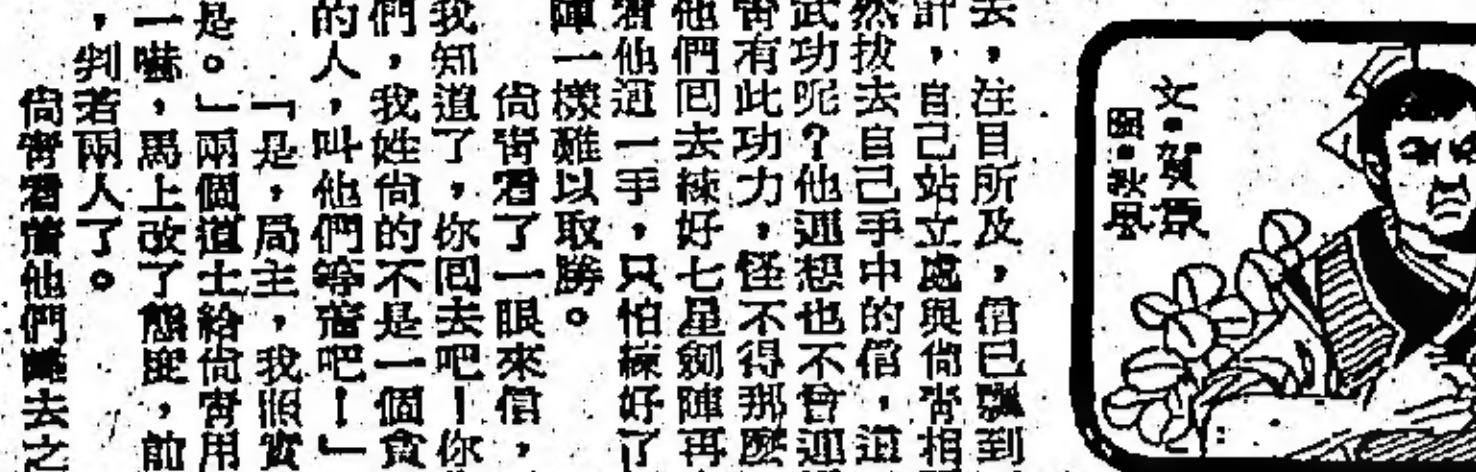 文•賀
圖•風
去，注目所及，信已飄到
計，自己站立處與尚甯相
然拔去自己手中的信，這
武功呢？他連想也不曾
甯有此功力，怪不得那麼
他們回去練好七星劍陣再
看他這一手，只怕練好了
陣一樣難以取勝。
尚甯看了一眼來信，
我知道了，你回去吧！你
們，我姓尚的不是一個貪
的人，叫他們等着吧！」
「是，局主，我照實
是。」兩個道士給尚甯用
一嚇，馬上改了態度，前
，判若兩人了。
尚甯看着他們離去之